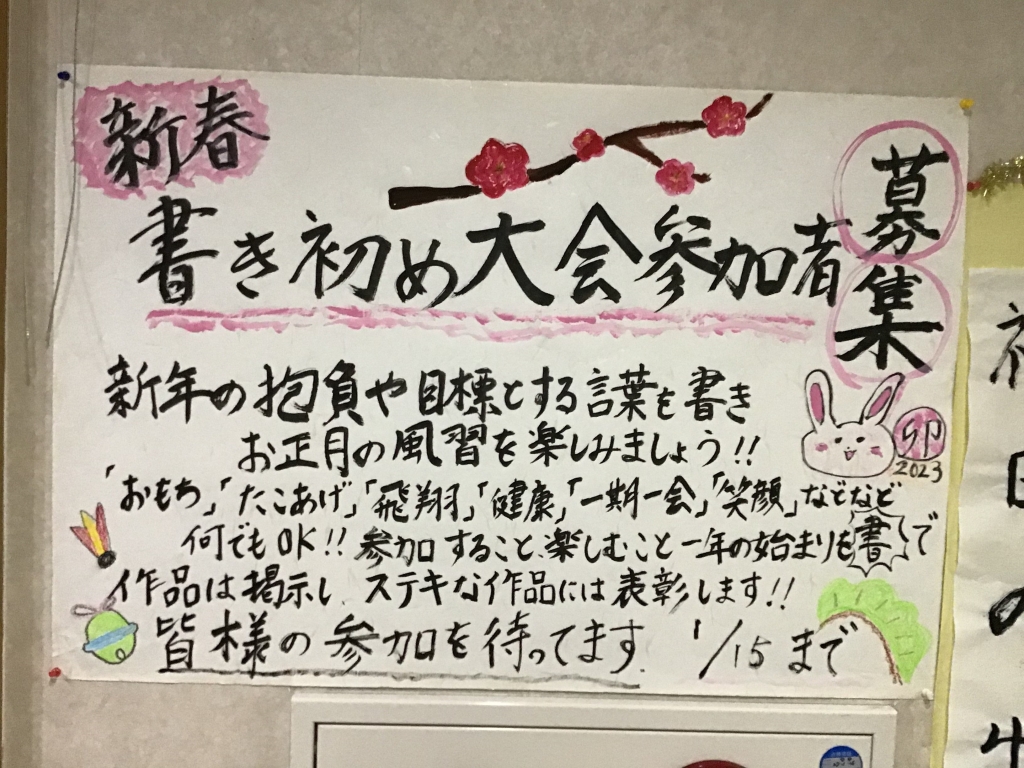 新春
書き初め大会参加者
募集
新年の抱負や目標とする言葉を書き
お正月の風習を楽しみましょう!!
卯
2023
「おもち」「たこあげ」「飛翔」「健康」「一期一会」「笑顔」などなど
何でもOK!! 参加すること、楽しむこと 一年の始まりも書で
作品は掲示し、ステキな作品には表彰します!!
皆様の参加を待ってます。 1/15まで